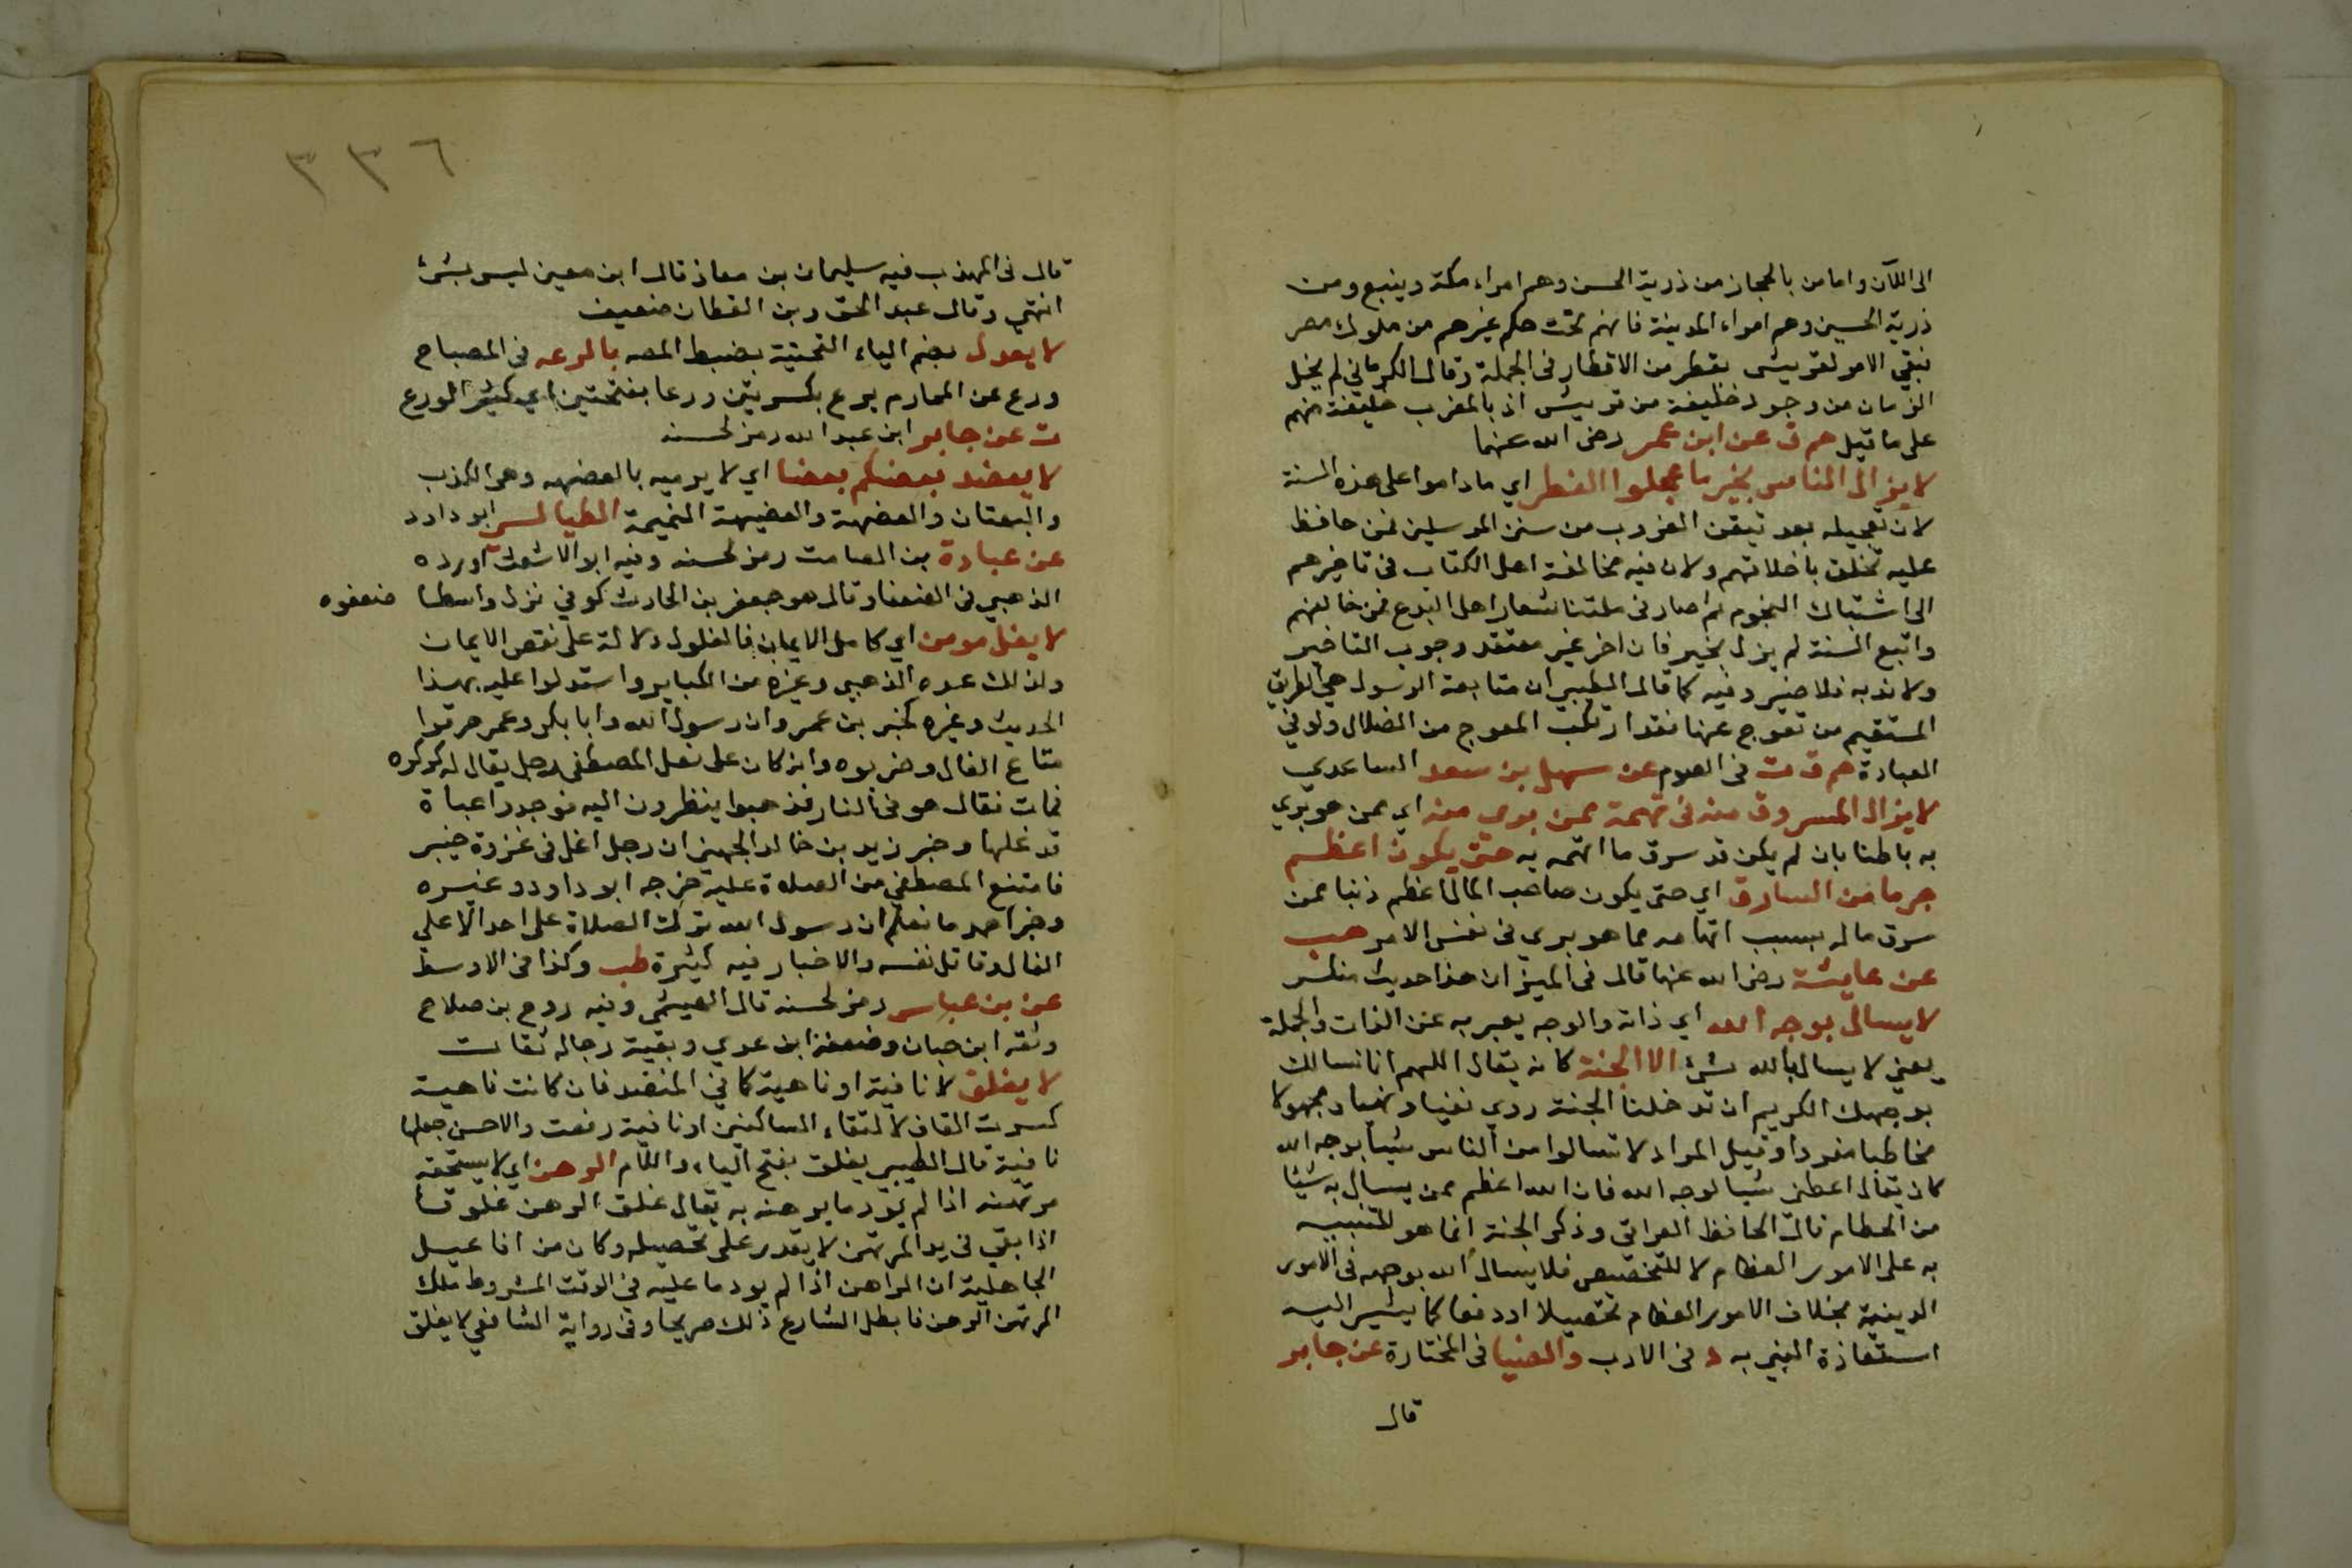 الى الآن واما من بالحجاز من ذرية الحسن وهم امراء مكة وينبع ومن
ذرية الحسين وهم امراء المدينة فانهم تحت حكم غيرهم من ملوك مصر
فبقي الامر لقريش بقطر من الاقطار في الجملة وقال الكرماني لم يخل
الزمان من وجود خليفة من قريش اذ بالمغرب خليفة منهم
على ما قيل حم ق عن ابن عمر رضى الله عنهما
لا يزال الناس بخير ما عجلوا الفطر اي ما داموا على هذه السنة
لان تعجيله بعد تيقن الغروب من سنن المرسلين فمن حافظ
عليه تخلق باخلاقهم ولان فيه مخالفة اهل الكتاب في تاخيرهم
الى اشتباك النجوم ثم صار في ملتنا شعار اهل البدع فمن خالفهم
واتبع السنة لم يزل بخير فان اخر غير معتقد وجوب التاخير
ولا ندبه فلا ضير وفيه كما قال الطيبي ان متابعة الرسول هي الطريق
المستقيم من تعوج عنها فقد ارتكب المعوج من الضلال ولو في
العبادة حم ق ت في الصوم عن سهل بن سعد الساعدي
لا يزال المسروق منه في تهمة ممن بري منه اي ممن هو بري
به باطنا بان لم يكن قد سرق ما اتهمه به حتى يكون اعظم
جرما من السارق اي حتى يكون صاحب المال اعظم ذنبا ممن
سرق ماله بسبب اتهامه مما هو بري في نفس الامر هب
عن عايشة رضى الله عنها قال في الميزان هذا حديث منكر
لا يسال بوجه الله اي ذاته والوجه يعبر به عن الذات والجملة
يعني لا يسال بالله شئ الا الجنة كانه يقال اللهم انا نسالك
بوجهك الكريم ان تدخلنا الجنة روي نفيا ونهيا ومجهولا
مخاطبا مفردا وقيل المراد لا تسالوا من الناس شيا بوجه الله
كان يقال اعطني شيا لوجه الله فان الله اعظم ممن يسال به شيئا
من الحطام قال الحافظ العراقي وذكر الجنة انما هو للتنبيه
به على الامور العظام لا للتخصيص فلا يسال الله بوجهه في الامور
الدينية بخلاف الامور العظام تحصيلا او دفعا كما يشير اليه
استعاذة النبي به د في الادب والضيا في المختارة عن جابر
قال
٣٣٦
قال في المهذب فيه سليمان بن معاذ قال ابن معين ليس بشئ
انتهي وقال عبد الحق وبن القطان ضعيف
لا يعدل بضم الياء التحتية بضبط المصه بالرعه في المصباح
ورع عن المحارم يرع بكسرتين ورعا بفتحتين اي كثير الورع
ت عن جابر ابن عبد الله رمز لحسنه
لا يعضد بعضكم بعضا اي لا يرميه بالعضهه وهى الكذب
والبهتان والعضهة والعضيهة النميمة الطيالسي ابو داود
عن عبادة بن الصامت رمز لحسنه وفيه ابو الاشعث اورده
الذهبي في الضعفا وقال هو جعفر بن الحارث كوفي نزل واسطا ضعفوه
لا يغل مومن اي كامل الايمان فالغلول دلالة على نقص الايمان
ولذلك عده الذهبي وغيره من الكباير واستدلوا عليه بهذا
الحديث وغيره كخبر بن عمر وان رسول الله وابا بكر وعمر حرقوا
متاع الغال وضربوه وانه كان على نقل المصطفى رجل يقال له كركره
فمات فقال هو في النار فذهبوا ينظرون اليه فوجدوا عباة
قد غلها وخبر زيد بن خالد الجهني ان رجل اغل في غزوة خيبر
فامتنع المصطفي من الصلاة عليه خرجه ابو داود وغيره
وخبر احمد ما نعلم ان رسول الله ترك الصلاة على احد الا على
الغال وقاتل نفسه والاخبار فيه كثيرة طب وكذا في الاوسط
عن بن عباس رمز لحسنه قال الهيثمي وفيه روح بن صلاح
وثقه ابن حبان وضعفه ابن عدي وبقية رجاله ثقات
لا يغلق لا نافية او ناهية كما في المنضد فان كانت ناهية
كسرت القاف لالتقاء الساكنين او نافية رفعت والاحسن جعلها
نافية قال الطيبي يغلق بفتح الياء واللام الرهن اي لا يستحقه
مرتهنه اذا لم يؤد ما يرهنه به يقال غلق الرهن غلوقا
اذا بقي في يد المرتهن لا يقدر على تخصيله وكان من افاعيل
الجاهلية ان الراهن اذا لم يود ما عليه في الوقت المشروط ملك
المرتهن الرهن فابطل الشارع ذلك صريحا وفى رواية الشافعي لا يغلق